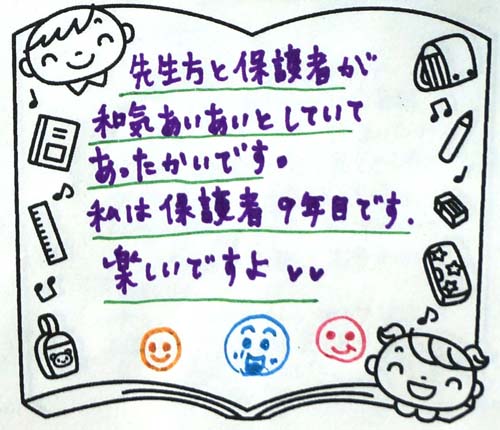 先生方と保護者が
和気あいあいとしていて
あったかいです。
私は保護者9年目です.
楽しいですよ